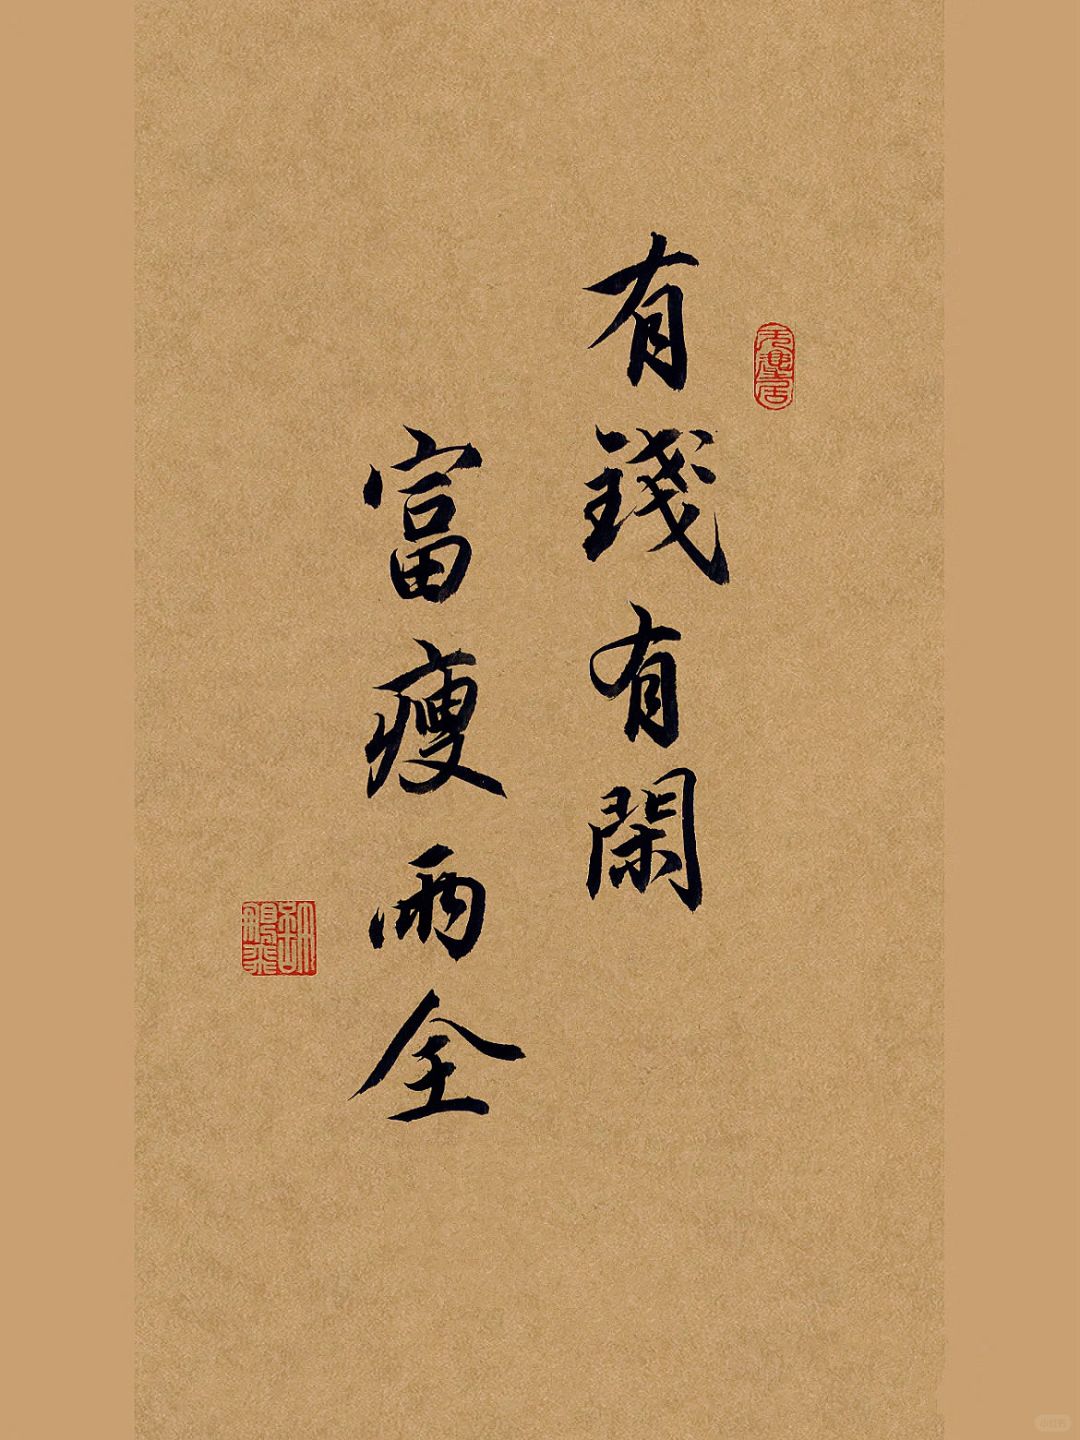 有錢有閑
富瘦兩全